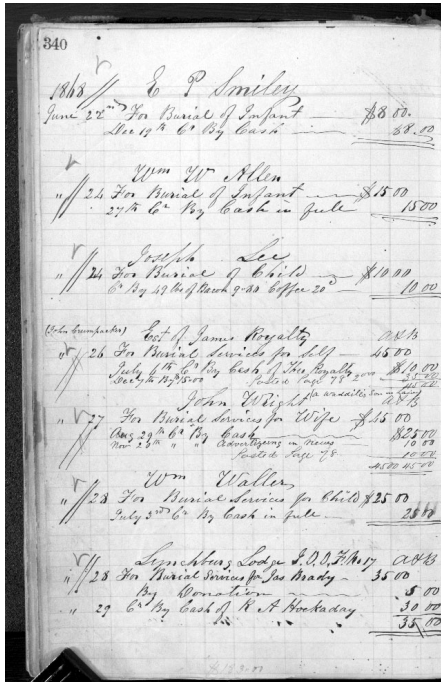 340
1868 // E P Smiley
June 22nd For Burial of Infant — $8 00
Dec 19th Cr By Cash — $8.00
Wm W Allen
" // 24 For Burial of Infant — $15 00
27th Cr By Cash in full 15 00
Joseph Lee
" // 24 For Burial of Child — $10 00
Cr By 49 lbs of 9.80 Coffee 20c 10.00
(John Crumpacker) Est of James Royalty A & B
" // 26 For Burial Services for Self — 45 00
July 6th Cr By Cash of Theo Royalty $10.00
Dec 7th By 35 00 Posted Page 78 35.00
45 00
John Wright A & B
" // 27 For Burial Services for Wife $45 00
Aug 29th Cr By Cash — $25 00
Nov 28th " " Advertizing in News 10 00
Posted Page 78 10 00
45 00 45 00
Wm Waller
" // 28 For Burial Services for Child $25 00
July 3rd Cr By Cash in full — 25 00
Lynchburg Lodge I.O.O.F. No 17 A & B
" // 28 For Burial Services for Jas Brady — 35 00
By Donation — 5 00
" 29 Cr By Cash of R A Hockaday 30 00
35 00